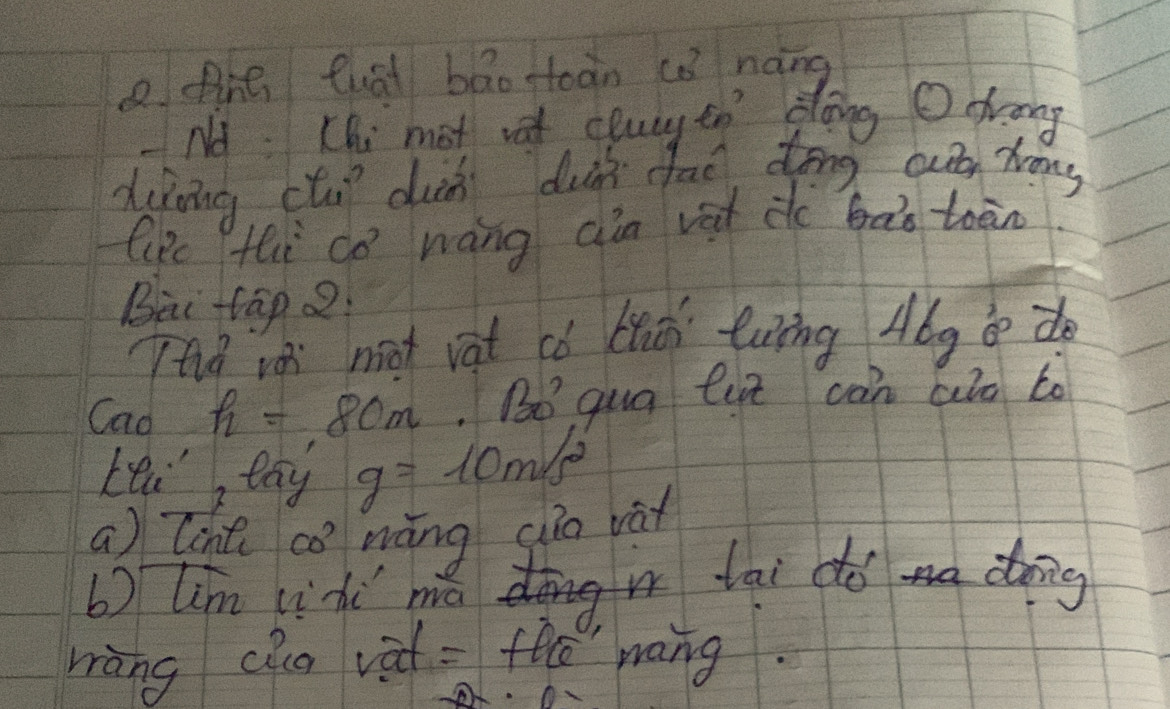 2. Định luật bảo toàn cơ năng
- Nd: Khi một vật chuyển động trong
trường chỉ dưới dưới tác động của trọng
lực thì cơ năng của vật đc bảo toàn.
Bài tập 2:
Thả rơi một vật có khối lượng 4kg ở độ
cao h = 80m. Bỏ qua lực cản của ko
khí, lấy g = 10m/s²
a) Tính cơ năng của vật
b) Tìm vị trí mà động n tại đó na động
năng của vật = thế năng.